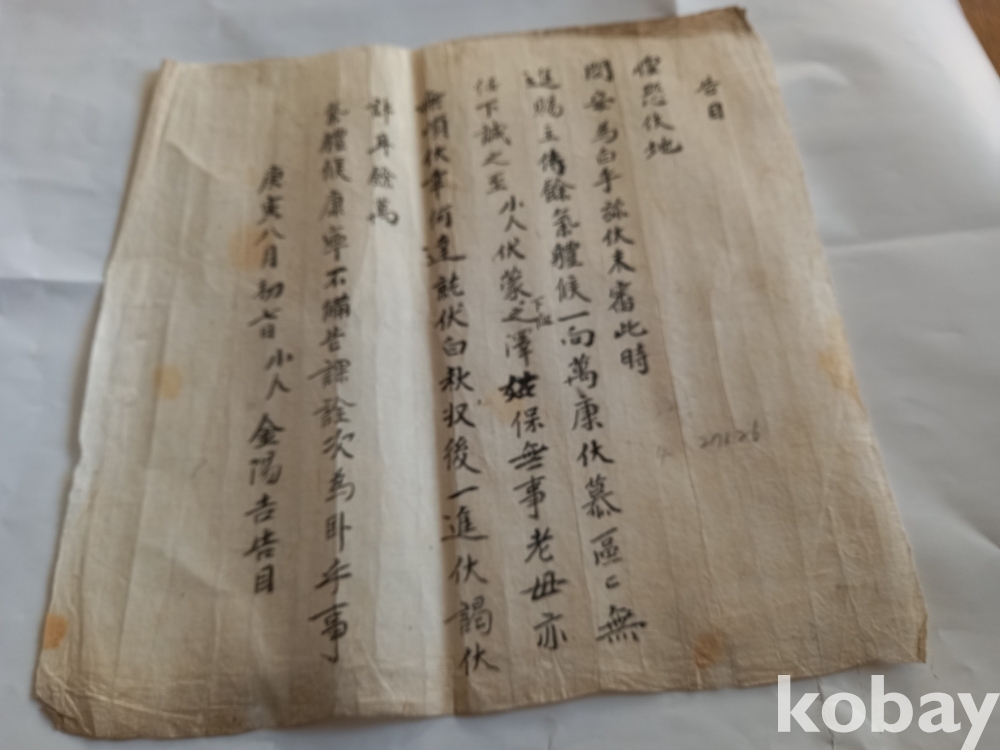 告目
惶恐伏地
問安爲白乎旀伏未審此時
進賜主傳餘氣體候一向萬康伏慕區〻無
任下誠之至小人伏蒙下恤之澤姑保無事老母亦
無頉伏幸何達就伏白秋收後一進伏謁伏
計耳餘萬
氣體候康寧不備告課詮次爲卧乎事
庚寅八月初七日小人金陽吉告目
27626
kobay